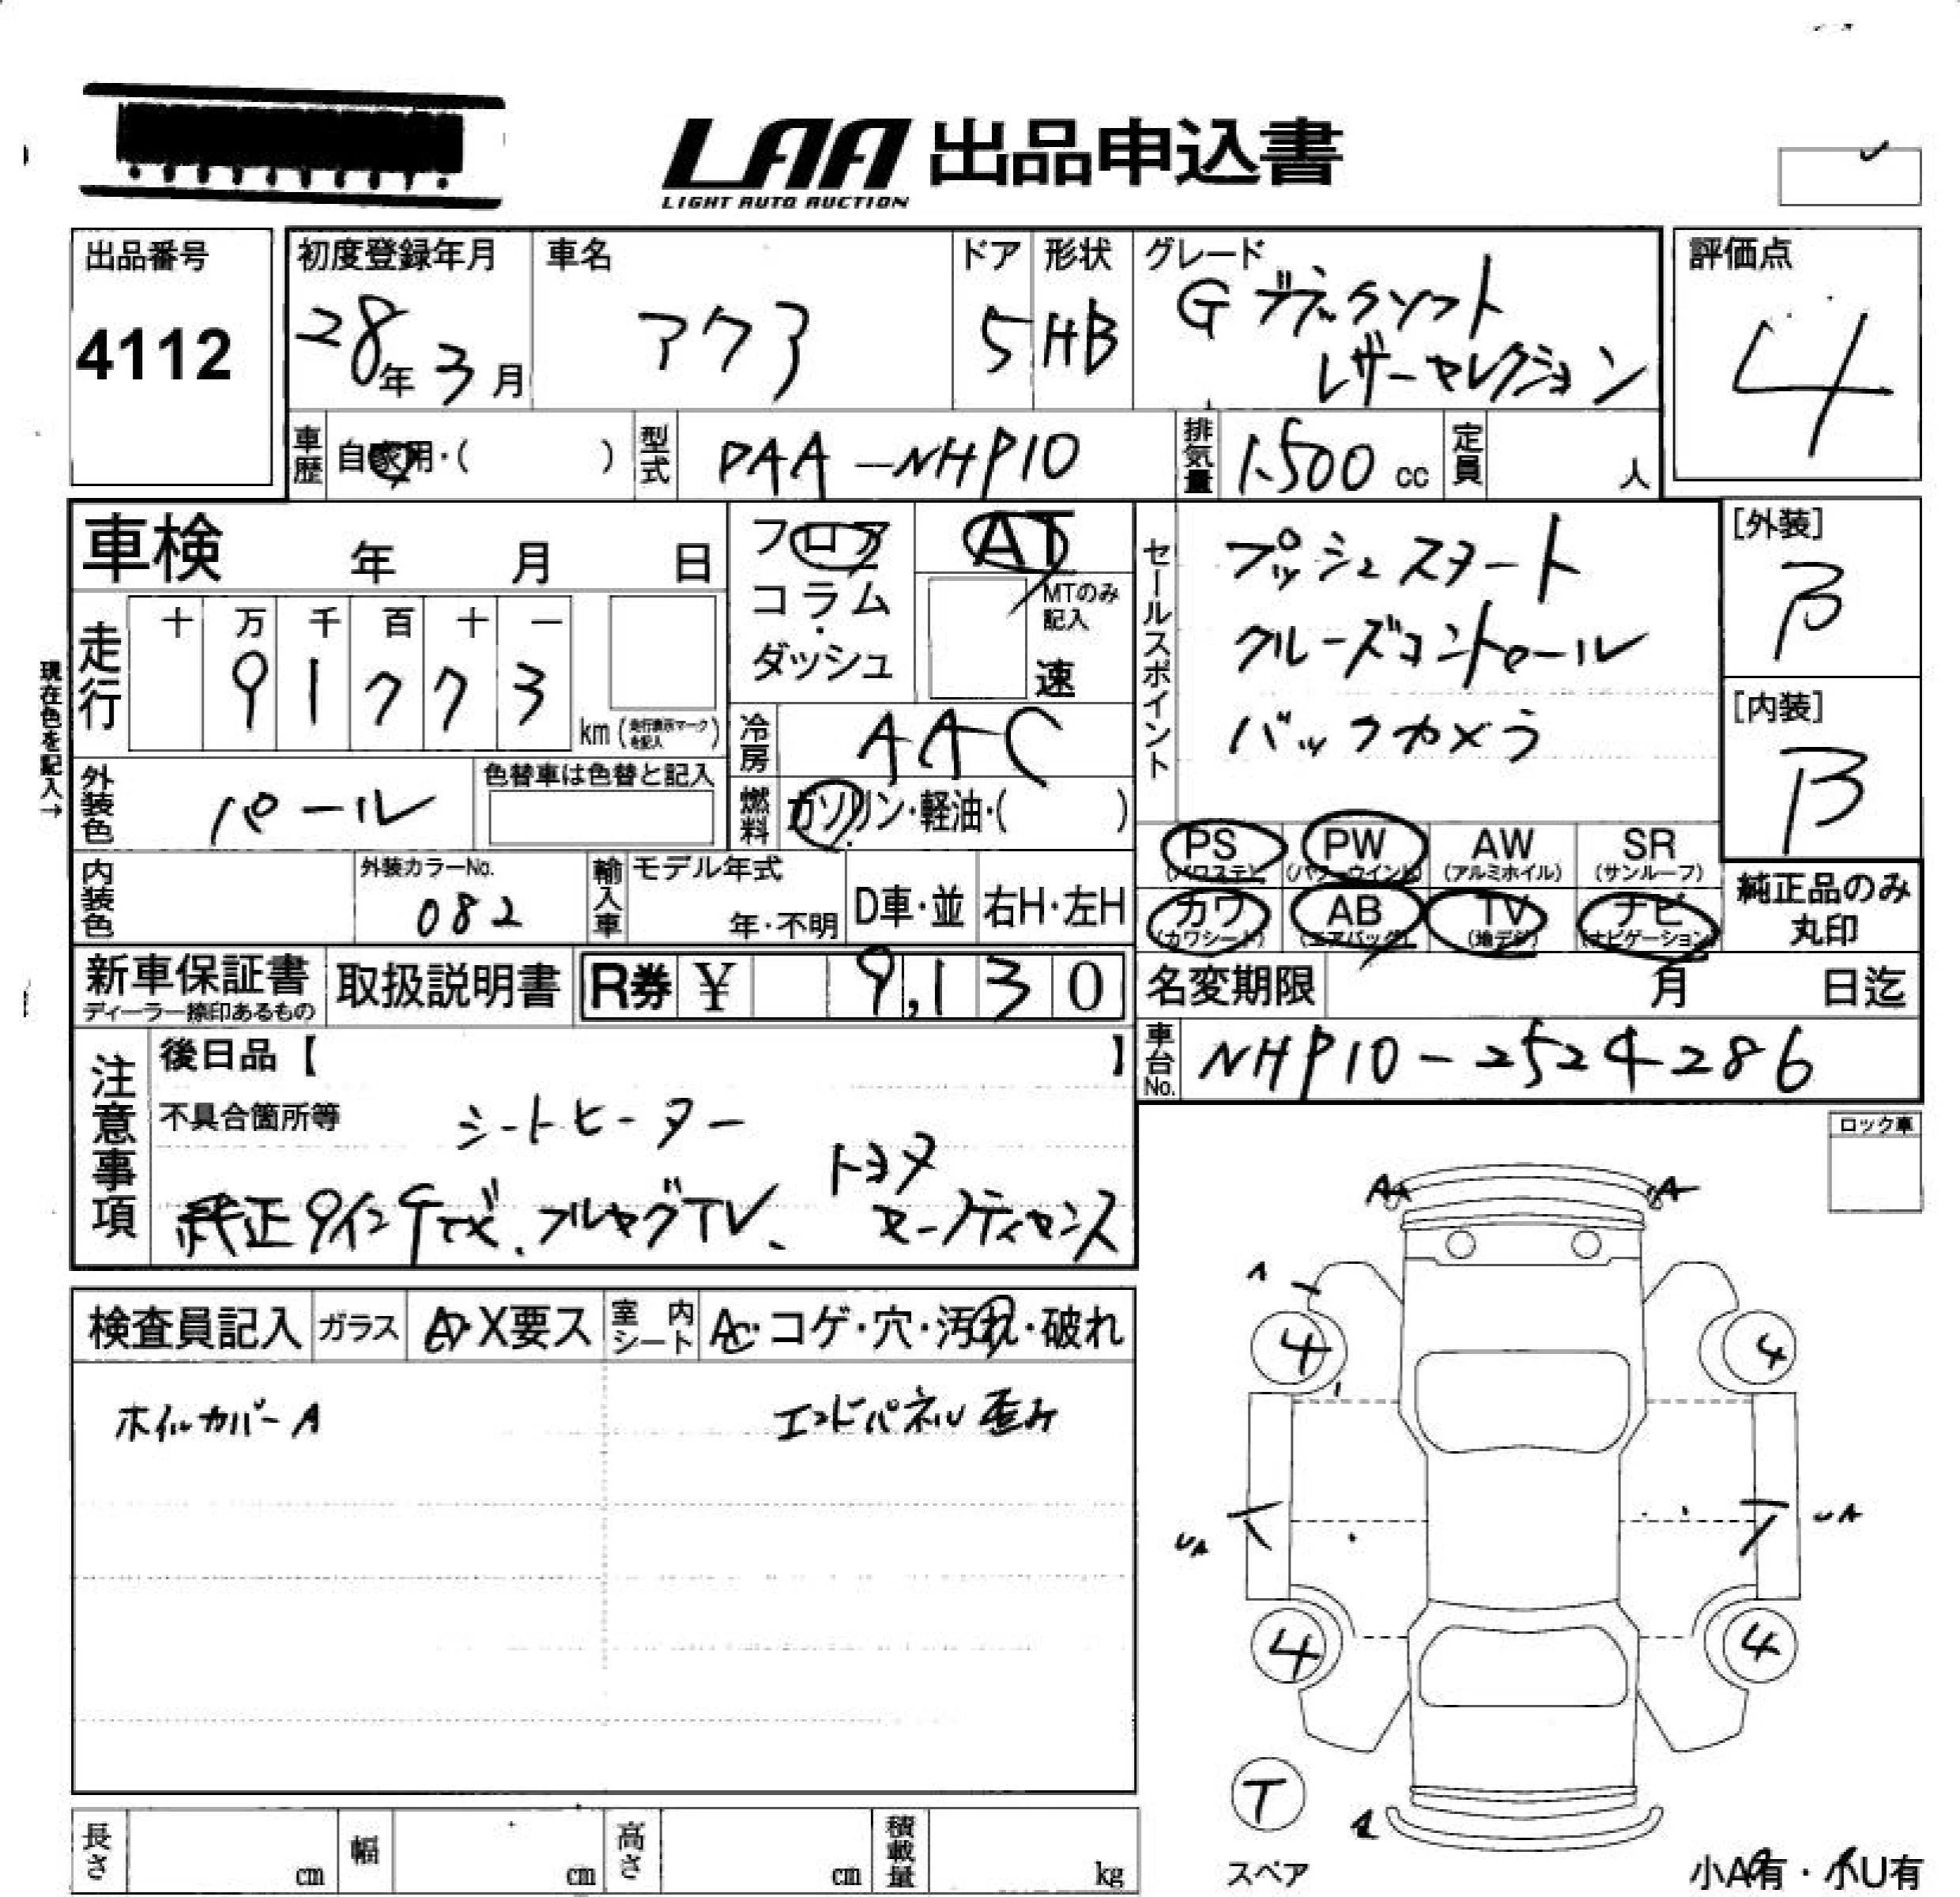 LAA 出品申込書
LIGHT AUTO AUCTION
出品番号
4112
初度登録年月
28年 3月
車名
アクア
ドア
5
形状
HB
グレード
G ブラックソフト
レザーセレクション
評価点
4
車歴
自家用・( )
型式
DAA-NHP10
排気量
1.500 cc
定員
人
車検 年 月 日
フロア
コラム・
ダッシュ
AT
MTのみ
記入
速
セールスポイント
プッシュスタート
クルーズコントロール
バックカメラ
[外装]
B
[内装]
B
現在色を記入→
走行
十 万 千 百 十 一
9 1 7 7 3
km (走行表示マークを記入)
冷房
AAC
燃料
ガソリン・軽油・( )
外装色
パール
色替車は色替と記入
内装色
外装カラーNo.
082
輸入車
モデル年式
年・不明
D車・並
右H・左H
PS
(パワステ)
PW
(パワーウインド)
AW
(アルミホイル)
SR
(サンルーフ)
カワ
(カワシート)
AB
(エアバッグ)
TV
(地デジ)
ナビ
(ナビゲーション)
純正品のみ
丸印
新車保証書
ディーラー捺印あるもの
取扱説明書
R券 ¥ 9,130
名変期限 月 日迄
車台No.
NHP10-2524286
注意事項
後日品【 】
不具合箇所等
シートヒーター
トヨタ
純正9インチナビ、フルセグTV、
セーフティセンス
ロック車
検査員記入
ガラス
A・X要ス
室内シート
AC・コゲ・穴・汚れ・破れ
ホイルカバーA
エンドパネル歪み
A A
A
4 4
UA UA
4 4
T
スペア
小A有・小U有
長さ cm
幅 cm
高さ cm
積載量 kg